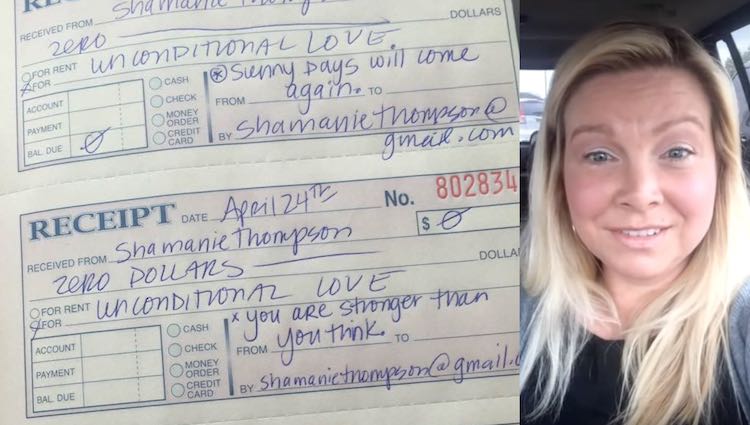 RECEIVED FROM Shamanie
ZERO DOLLARS
FOR RENT
FOR UNCONDITIONAL LOVE
ACCOUNT CASH * Sunny Days will come
PAYMENT CHECK FROM again. TO
BAL. DUE 0 MONEY ORDER
CREDIT CARD BY shamaniethompson@
gmail.com
RECEIPT DATE April 24TH No. 802834
RECEIVED FROM Shamanie Thompson $ 0
ZERO DOLLARS DOLLA
FOR RENT
FOR UNCONDITIONAL LOVE
ACCOUNT CASH * you are stronger than
PAYMENT CHECK FROM you think. TO
BAL. DUE MONEY ORDER
CREDIT CARD BY shamaniethompson@gmail.